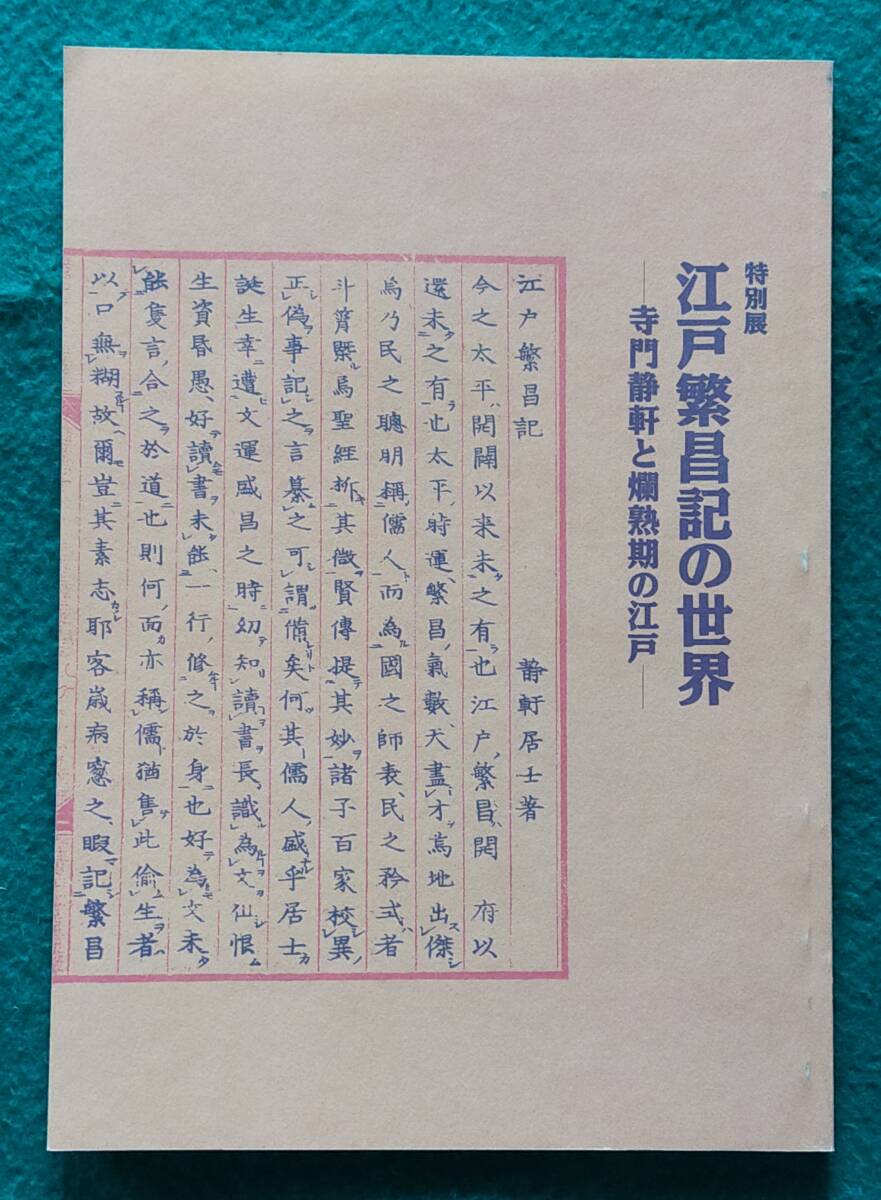 特別展
江戸繁昌記の世界
―寺門静軒と爛熟期の江戸―
江戸繁昌記 靜軒居士著
今之太平開闢以来未之有也江戸繁昌開 府以
還未之有也太平時運繁昌氣數天盡才焉地出傑
焉乃民之聰明稱儒人而為國之師表民之矜式者
斗筲槩焉聖經折其微賢傳提其妙諸子百家校異
正偽事記之言纂之可謂備矣何其儒人盛乎居士
誕生幸遭文運盛昌之時幼知讀書長識為文仙恨
生資昏愚好讀書未能一行修之於身也好為文未
能隻言合之於道也則何面亦稱儒猶售此偷生者
以口無糊故爾豈其素志耶客歳病窓之暇記繁昌